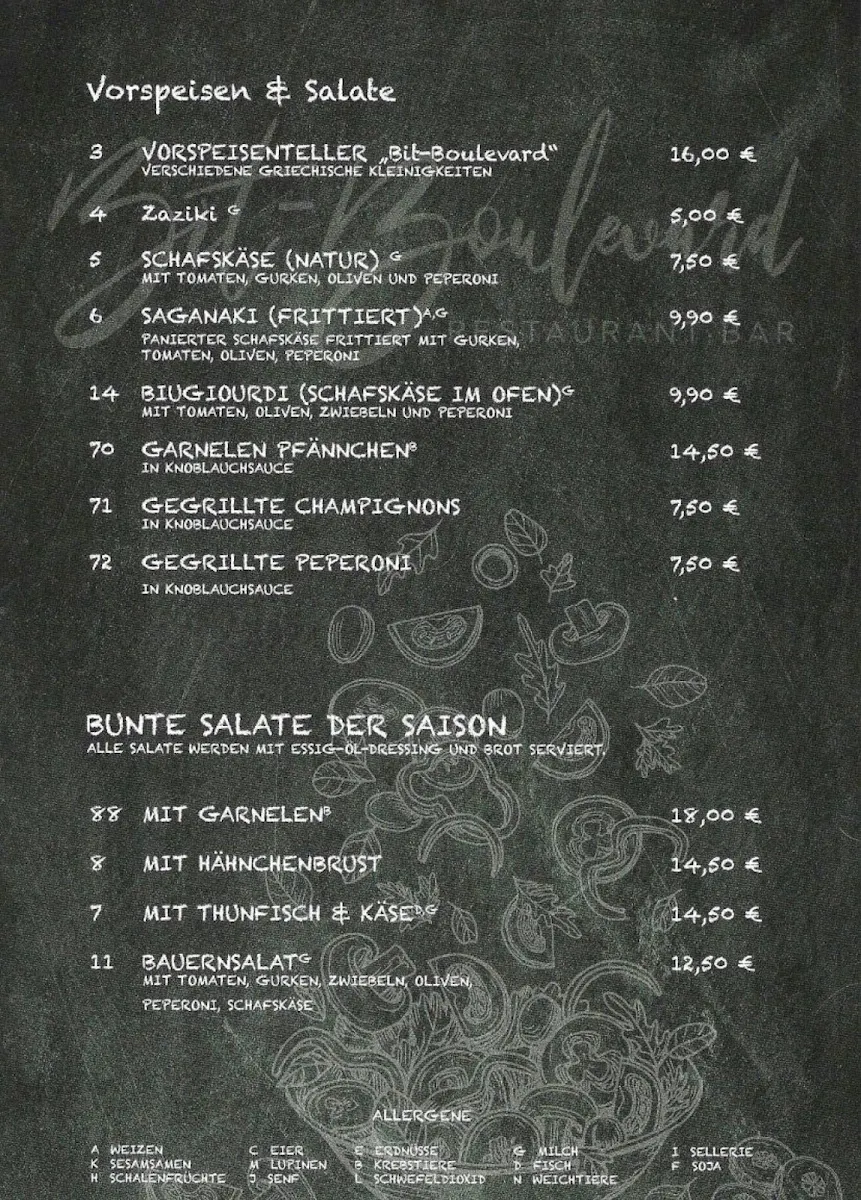 Vorspeisen & Salate
3 VORSPEISENTELLER „Bit-Boulevard“ 16,00 €
VERSCHIEDENE GRIECHISCHE KLEINIGKEITEN
4 Zaziki G 5,00 €
5 SCHAFSKÄSE (NATUR) G 7,50 €
MIT TOMATEN, GURKEN, OLIVEN UND PEPERONI
6 SAGANAKI (FRITTIERT)A,G 9,90 €
PANIERTER SCHAFSKÄSE FRITTIERT MIT GURKEN,
TOMATEN, OLIVEN, PEPERONI
14 BIUGIOURDI (SCHAFSKÄSE IM OFEN)G 9,90 €
MIT TOMATEN, OLIVEN, ZWIEBELN UND PEPERONI
70 GARNELEN PFÄNNCHENB 14,50 €
IN KNOBLAUCHSAUCE
71 GEGRILLTE CHAMPIGNONS 7,50 €
IN KNOBLAUCHSAUCE
72 GEGRILLTE PEPERONI 7,50 €
IN KNOBLAUCHSAUCE
Bit-Boulevard
RESTAURANT.BAR
BUNTE SALATE DER SAISON
ALLE SALATE WERDEN MIT ESSIG-ÖL-DRESSING UND BROT SERVIERT.
88 MIT GARNELENB 18,00 €
8 MIT HÄHNCHENBRUST 14,50 €
7 MIT THUNFISCH & KÄSED,G 14,50 €
11 BAUERNSALATG 12,50 €
MIT TOMATEN, GURKEN, ZWIEBELN, OLIVEN,
PEPERONI, SCHAFSKÄSE
ALLERGENE
A WEIZEN C EIER E ERDNÜSSE G MILCH I SELLERIE
K SESAMSAMEN M LUPINEN B KREBSTIERE D FISCH F SOJA
H SCHALENFRÜCHTE J SENF L SCHWEFELDIOXID N WEICHTIERE